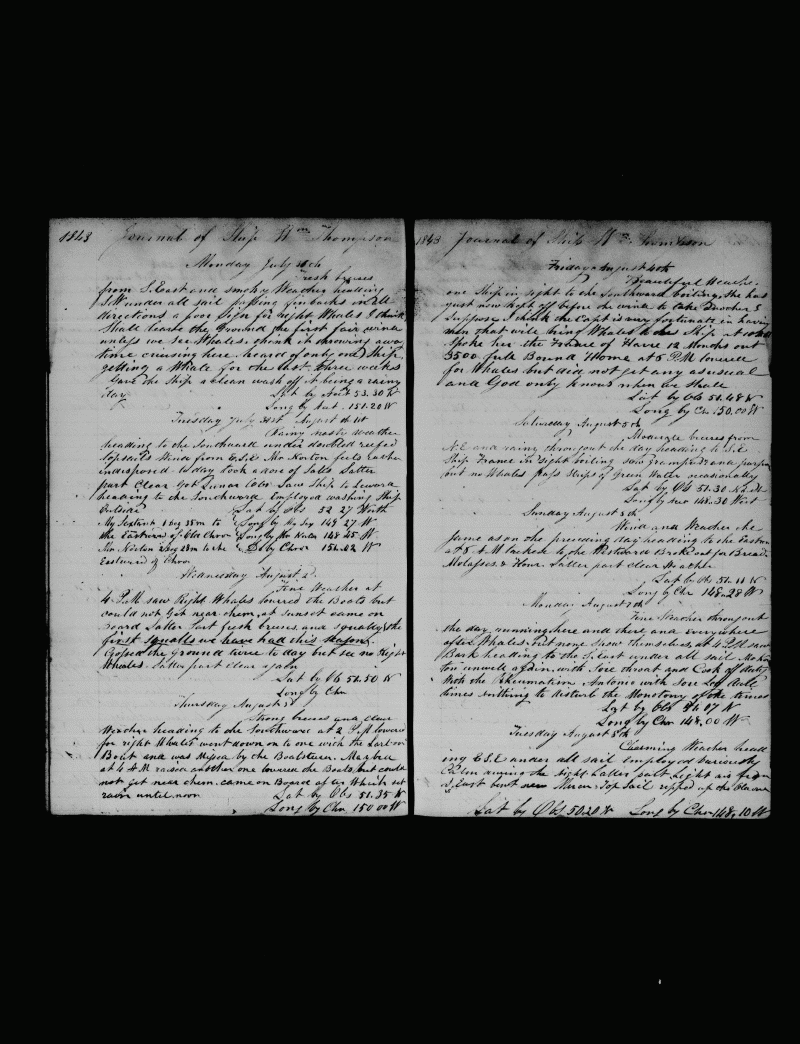 1843 Journal of Ship Wm Thompson
Monday July
Fresh breeses
from S. East and smoky Weather heading
S.W under all sail passing finbacks in all
directions a poor sign for right Whales I think
shall leave the Ground the first fair wind
unless we see Whales. think it throwing away
time cruising here. heard of only one Ship
getting a Whale for the last three weeks
Gave the Ship a clean wash off it being a rainy
day Lat by Act 53.30 N
Long by Act. 151.20 W
Tuesday July 31st August 1st
Rainy nasty weather
heading to the Southward under doubled reefed
topsails Wind from E.S.E Mr Norton feels rather
indisposed to day took a dose of Salts Latter
part Clear Got Lunar Obs Saw Ship to Leward
heading to the Southward Employed washing Ship
outside Lat by Obs 52 27 North
My Sextant 1 deg 35m to Long by My Sex 149 27 W
the Eastward of Chro Long by Mr 148 45 W
Mr Norton 2 deg 28m to the Do by Chro 151.02 W
Eastward of Chro
Wednesday August 2d
Fine Weather at
4 P.M saw Right Whales lowered the Boats but
could not get near them. at sunset came on
board Latter Part fresh breeses and squally the
first squalls we have had this season.
Crossed the Ground twice to day but see no Right
Whales. Latter part clear again
Lat by Ob 51.50 N
Long by Chr
Thursday August 3d
Strong breeses and clear
Weather heading to the Southward at 2 P.M lowered
for right Whales went down on to one with the Larboard
Boat and was missed by the Boatsteerer.
at 4 A.M raised another one lowered the Boats, but could
not get near them. came on Board after Which set
rain until noon Lat by Obs 51.35 N
Long by Chr 150 00 W
1843 Journal of Ship Wm Thompson
Friday August 4th
Beautiful Weather
one Ship in sight to the Southward boiling, she has
just now kept off before the wind to take another I
suppose. I think the Capt is very fortunate in having
men that will bring Whales to the Ship at
Spoke her the France of Havre 12 Months out
3500 full Bound Home at 5 P.M lowered
for Whales but did not get any as usual
and God only knows when we shall
Lat by Ob 51.48 N
Long by Chr 150.00 W
Saturday August 5th
Moderate breeses from
N.E and rainy throughout the day heading to S.E
Ship France in sight boiling saw Grampuses and
but no Whales pass Strips of Green Water occasionally
Lat by Ob 51.30 North
Long by 148.30 West
Sunday August 6th
Wind and Weather the
same as on the preceding day heading to the Eastward
at 8 A.M tacked to the Westward Broke out for Bread
Molasses & Flour. Latter part clear Weather
Lat by Ob 51.11 N
Long by Chr 148.28 W
Monday August 7th
Fine Weather throughout
the day running here and there and everywhere
after Whales but none show themselves at 4 P.M saw
Bark heading to the S. East under all sail Mr Nor
ton unwell again. with Sore throat and Cook off duty
With the Rheumatism Antonio with Sore Leg dull
times nothing to disturb the Monotony of the times
Lat by Obs 07 N
Long by Chr 148.00 W
Tuesday August 8th
Charming Weather head
ing E.S.E under all sail employed variously
during the Night Latter part light air from
S. East bent new Mizen Top Sail ripped up the old one
Lat by Obs 50.20 N Long by Chr 148.10 W